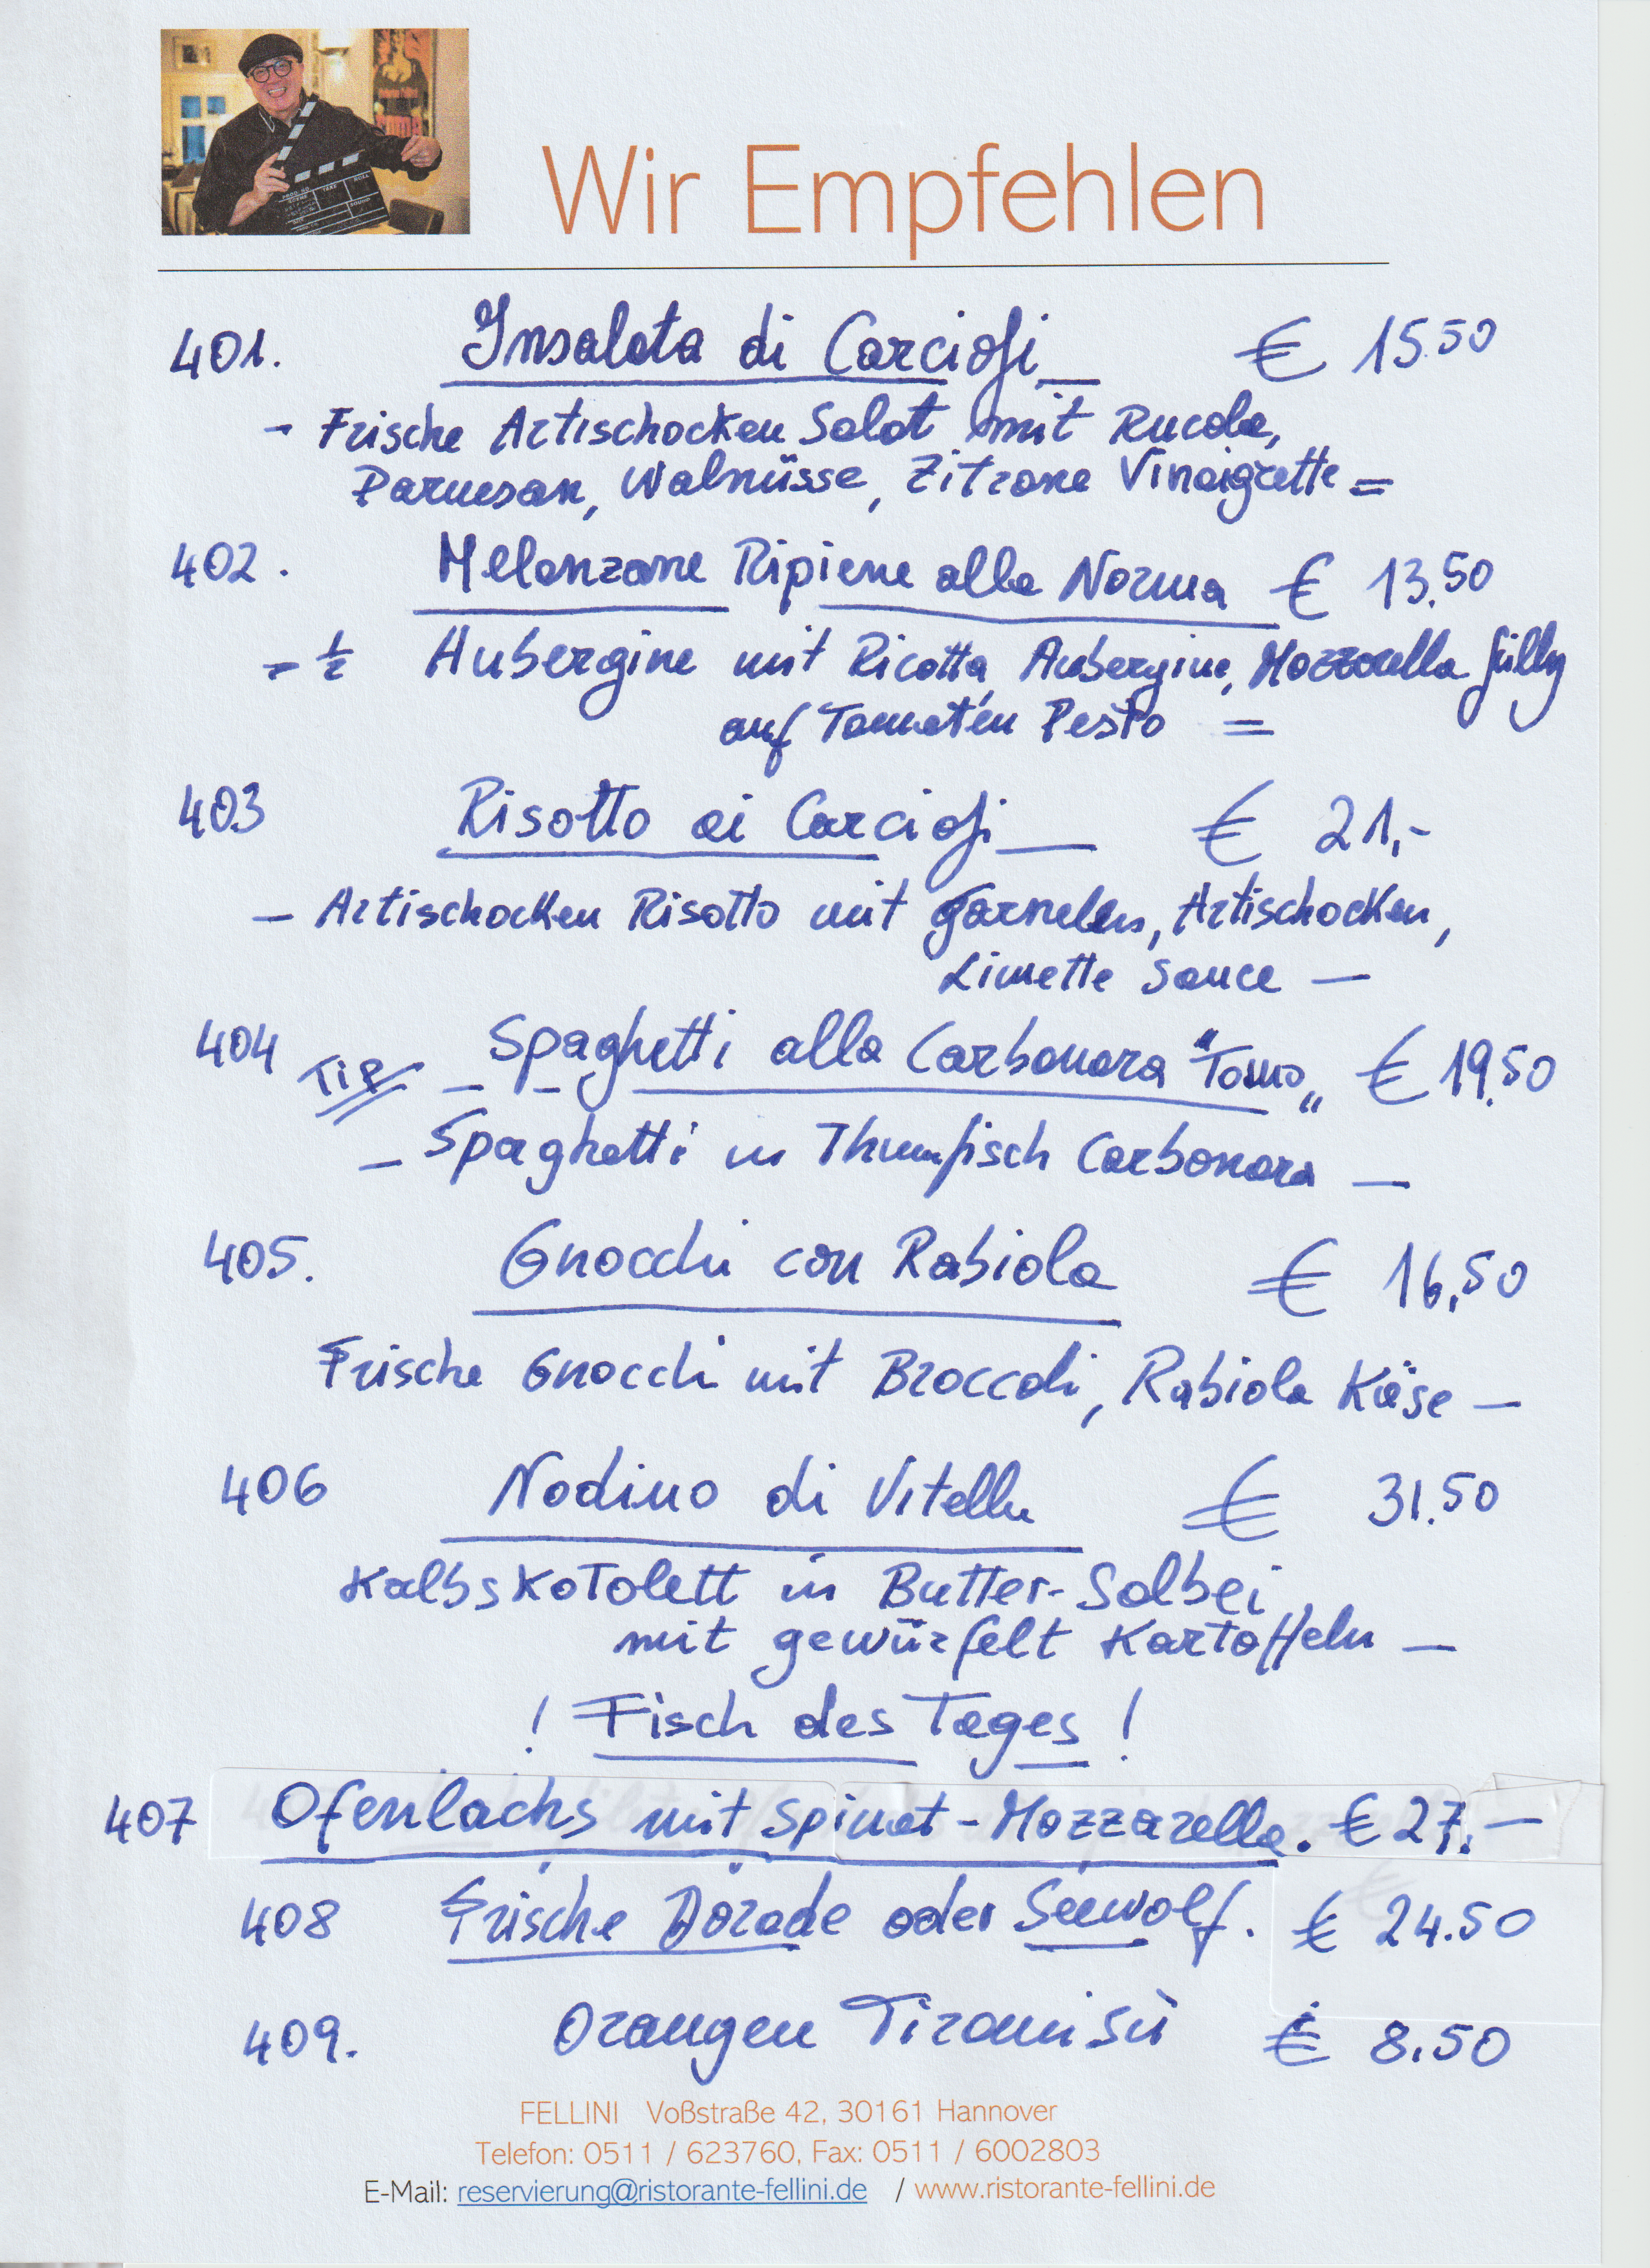 Wir Empfehlen
401. Insalata di Carciofi € 15.50
- Frische Artischocken Salat mit Rucola,
Parmesan, Walnüsse, Zitrone Vinaigrette =
402. Melanzane Ripiene alla Norma € 13.50
- ½ Aubergine mit Ricotta, Aubergine, Mozzarella
auf Tomaten Pesto =
403 Risotto ai Carciofi € 21,-
- Artischocken Risotto mit Garnelen, Artischocken,
Limette Sauce -
404 TIP - Spaghetti alla Carbonara "Tonno" € 19.50
- Spaghetti in Thunfisch Carbonara -
405. Gnocchi con Rabiola € 16,50
Frische Gnocchi mit Broccoli, Rabiola Käse -
406 Nodino di Vitello € 31.50
Kalbskotolett in Butter-Salbei
mit gewürfelt Kartoffeln -
! Fisch des Tages !
407 Ofenlachs mit Spinat-Mozzarella. € 27,-
408 Frische Dorade oder Seewolf. € 24.50
409. Orangen Tiramisù € 8.50
FELLINI Voßstraße 42, 30161 Hannover
Telefon: 0511 / 623760, Fax: 0511 / 6002803
E-Mail: reservierung@ristorante-fellini.de / www.ristorante-fellini.de